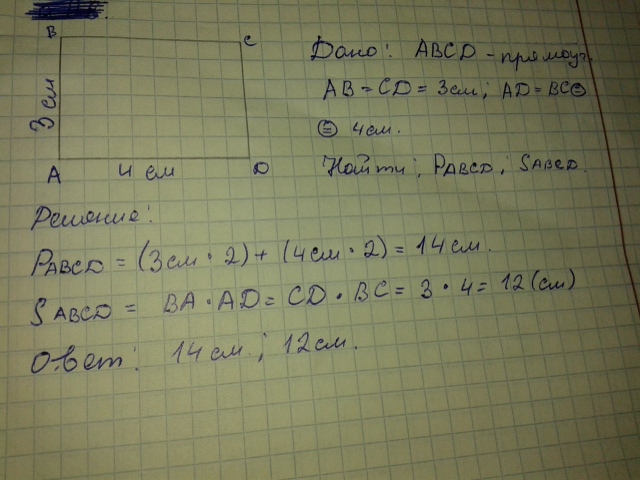 B C
Дано: ABCD - прямоуг.
3 см
AB = CD = 3см; AD = BC =
= 4см.
A 4 см D
Найти: PABCD; SABCD.
Решение:
PABCD = (3см · 2) + (4см · 2) = 14 см.
SABCD = BA · AD = CD · BC = 3 · 4 = 12 (см)
Ответ: 14 см; 12 см.